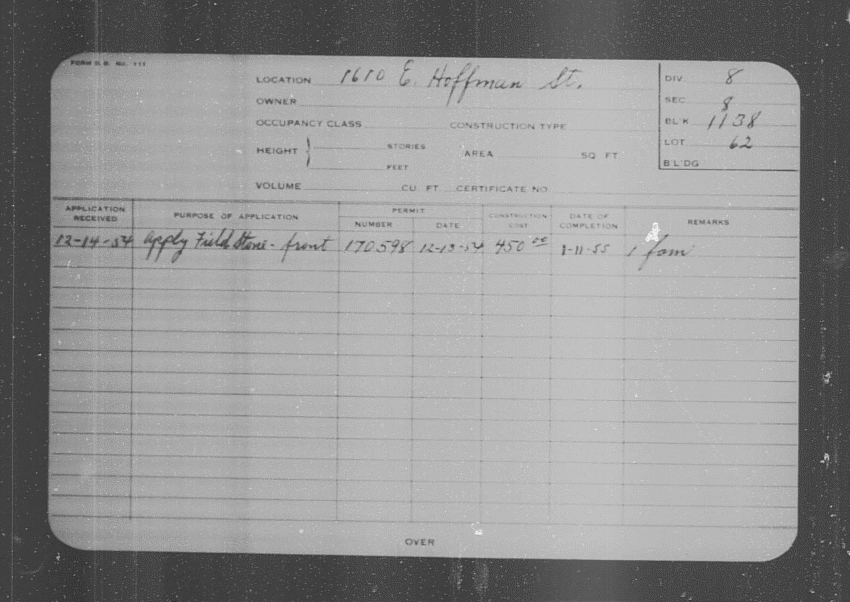 FORM D.B. No. 111
LOCATION 1610 E. Hoffman St.
OWNER
OCCUPANCY CLASS CONSTRUCTION TYPE
HEIGHT } STORIES AREA SQ FT
FEET
VOLUME CU. FT. CERTIFICATE NO
DIV. 8
SEC. 8
BL'K 1138
LOT 62
BL'DG
APPLICATION RECEIVED PURPOSE OF APPLICATION PERMIT NUMBER DATE CONSTRUCTION COST DATE OF COMPLETION REMARKS
12-14-54 Apply Field Stone - front 170598 12-13-54 450 00 1-11-55 1 fam
OVER